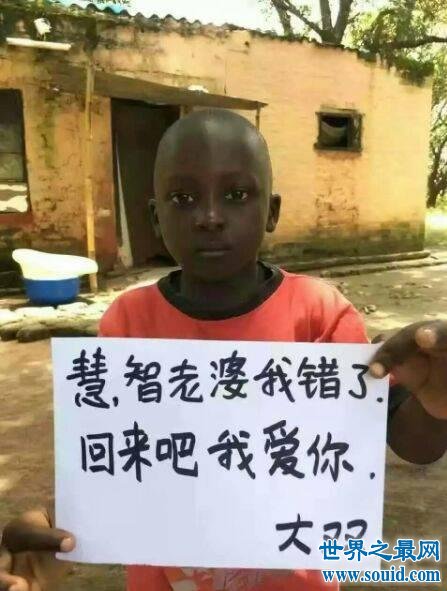 慧,智老婆我错了.
回来吧我爱你.
大双
世界之最网
www.souid.com